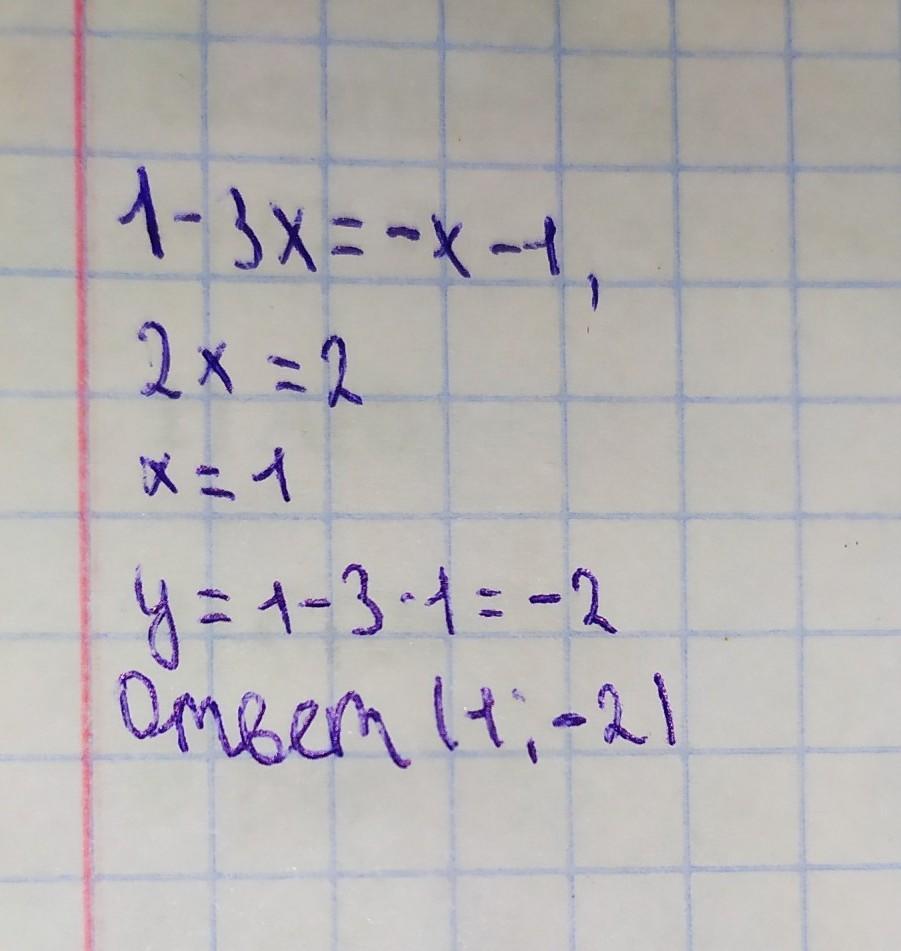 1-3x=-x-1,
2x=2
x=1
y=1-3·1=-2
Ответ (1;-2)